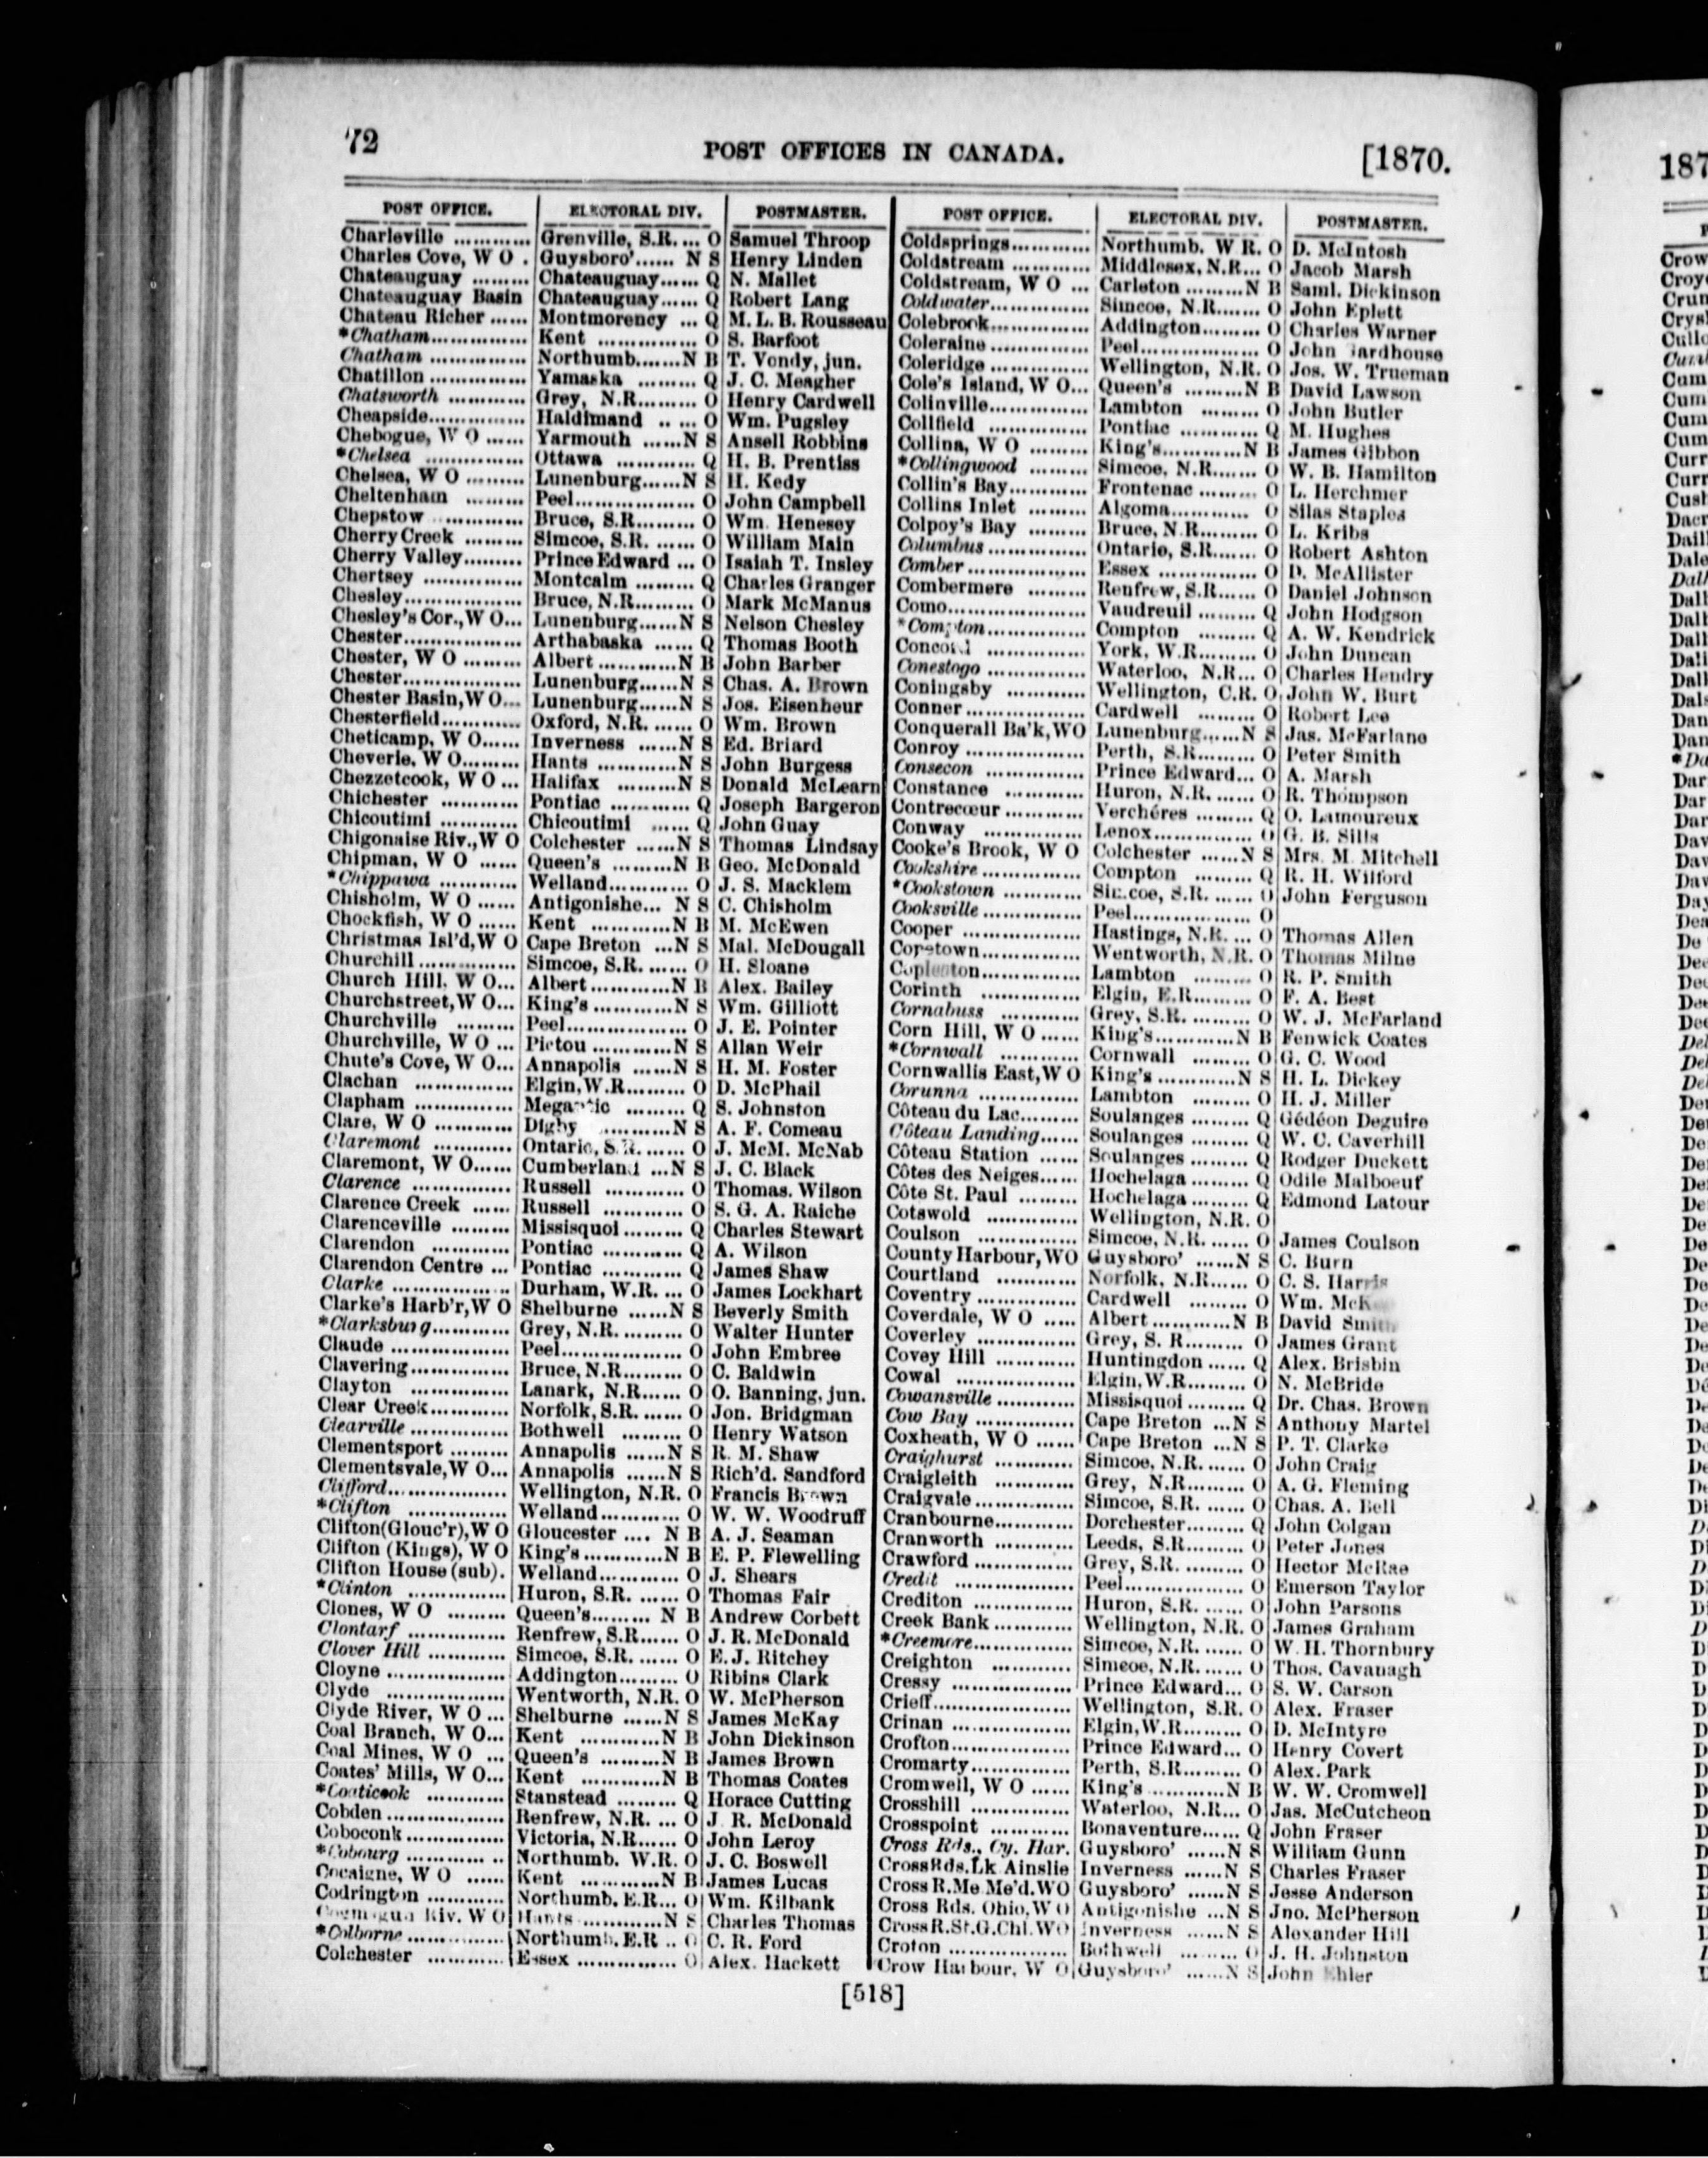 72
POST OFFICES IN CANADA.
[1870.
POST OFFICE. ELECTORAL DIV. POSTMASTER.
Charleville ............ Grenville, S.R. ... O Samuel Throop
Charles Cove, W O . Guysboro' ...... N S Henry Linden
Chateauguay ......... Chateauguay...... Q N. Mallet
Chateauguay Basin Chateauguay...... Q Robert Lang
Chateau Richer ...... Montmorency ... Q M. L. B. Rousseau
*Chatham............... Kent ............... O S. Barfoot
Chatham ............... Northumb.......N B T. Vondy, jun.
Chatillon ............... Yamaska ......... Q J. C. Meagher
Chatsworth ............ Grey, N.R......... O Henry Cardwell
Cheapside............... Haldimand .. ... O Wm. Pugsley
Chebogue, W O ...... Yarmouth ......N S Ansell Robbins
*Chelsea ............... Ottawa ............ Q H. B. Prentiss
Chelsea, W O ......... Lunenburg......N S H. Kedy
Cheltenham ......... Peel.................. O John Campbell
Chepstow ............ Bruce, S.R......... O Wm. Henesey
Cherry Creek ......... Simcoe, S.R. ...... O William Main
Cherry Valley......... Prince Edward ... O Isaiah T. Insley
Chertsey ............... Montcalm ......... Q Charles Granger
Chesley.................. Bruce, N.R......... O Mark McManus
Chesley's Cor., W O... Lunenburg......N S Nelson Chesley
Chester.................. Arthabaska ...... Q Thomas Booth
Chester, W O ......... Albert ............N B John Barber
Chester.................. Lunenburg......N S Chas. A. Brown
Chester Basin, W O... Lunenburg......N S Jos. Eisenheur
Chesterfield............ Oxford, N.R. ...... O Wm. Brown
Cheticamp, W O...... Inverness ......N S Ed. Briard
Cheverie, W O......... Hants ............N S John Burgess
Chezzetcook, W O ... Halifax .........N S Donald McLearn
Chichester ............ Pontiac ............ Q Joseph Bargeron
Chicoutimi ............ Chicoutimi ...... Q John Guay
Chigonaise Riv., W O Colchester ......N S Thomas Lindsay
Chipman, W O ...... Queen's .........N B Geo. McDonald
*Chippawa ............ Welland............ O J. S. Macklem
Chisholm, W O ...... Antigonishe... N S C. Chisholm
Chockfish, W O ...... Kent ............ N B M. McEwen
Christmas Isl'd, W O Cape Breton ...N S Mal. McDougall
Churchill............... Simcoe, S.R. ...... O H. Sloane
Church Hill, W O... Albert............N B Alex. Bailey
Churchstreet, W O... King's ............N S Wm. Gilliott
Churchville ......... Peel.................. O J. E. Pointer
Churchville, W O ... Pictou ............N S Allan Weir
Chute's Cove, W O... Annapolis ......N S H. M. Foster
Clachan ............... Elgin, W.R......... O D. McPhail
Clapham ............... Megantic ......... Q S. Johnston
Clare, W O ............ Digby ............N S A. F. Comeau
Claremont ............ Ontario, S.R. ...... O J. McM. McNab
Claremont, W O...... Cumberland ...N S J. C. Black
Clarence ............... Russell ............ O Thomas. Wilson
Clarence Creek ...... Russell ............ O S. G. A. Raiche
Clarenceville ......... Missisquoi ......... Q Charles Stewart
Clarendon ............ Pontiac ............ Q A. Wilson
Clarendon Centre ... Pontiac ............ Q James Shaw
Clarke .................. Durham, W.R. ... O James Lockhart
Clarke's Harb'r, W O Shelburne ......N S Beverly Smith
*Clarksburg............ Grey, N.R. ......... O Walter Hunter
Claude .................. Peel.................. O John Embree
Clavering............... Bruce, N.R......... O C. Baldwin
Clayton ............... Lanark, N.R...... O O. Banning, jun.
Clear Creek............ Norfolk, S.R. ...... O Jon. Bridgman
Clearville ............... Bothwell ......... O Henry Watson
Clementsport ......... Annapolis ......N S R. M. Shaw
Clementsvale, W O... Annapolis ......N S Rich'd. Sandford
Clifford.................. Wellington, N.R. O Francis Brown
*Clifton ............... Welland............ O W. W. Woodruff
Clifton (Glouc'r), W O Gloucester .... N B A. J. Seaman
Clifton (Kings), W O King's ............N B E. P. Flewelling
Clifton House (sub). Welland............ O J. Shears
*Clinton ............... Huron, S.R. ...... O Thomas Fair
Clones, W O ......... Queen's......... N B Andrew Corbett
Clontarf ............... Renfrew, S.R...... O J. R. McDonald
Clover Hill ............ Simcoe, S.R. ...... O E. J. Ritchey
Cloyne .................. Addington......... O Ribins Clark
Clyde .................. Wentworth, N.R. O W. McPherson
Clyde River, W O ... Shelburne ......N S James McKay
Coal Branch, W O... Kent ............N B John Dickinson
Coal Mines, W O ... Queen's .........N B James Brown
Coates' Mills, W O... Kent ............N B Thomas Coates
*Coaticook ............ Stanstead ......... Q Horace Cutting
Cobden .................. Renfrew, N.R. ... O J R. McDonald
Coboconk ............... Victoria, N.R...... O John Leroy
*Cobourg ............ .. Northumb. W.R. O J. C. Boswell
Cocaigne, W O ...... Kent ............N B James Lucas
Codrington ............ Northumb. E.R... O Wm. Kilbank
Riv. W O Hants ............N S Charles Thomas
*Colborne ............... Northumb. E.R .. O C. R. Ford
Colchester ............ Essex ............... O Alex. Hackett
POST OFFICE. ELECTORAL DIV. POSTMASTER.
Coldsprings............ Northumb. W R. O D. McIntosh
Coldstream ............ Middlesex, N.R... O Jacob Marsh
Coldstream, W O ... Carleton .........N B Saml. Dickinson
Coldwater............... Simcoe, N.R....... O John Eplett
Colebrook............... Addington......... O Charles Warner
Coleraine ............... Peel.................. O John ardhouse
Coleridge ............... Wellington, N.R. O Jos. W. Trueman
Cole's Island, W O... Queen's .........N B David Lawson
Colinville............... Lambton ......... O John Butler
Collfield ............... Pontiac ............ Q M. Hughes
Collina, W O ......... King's............N B James Gibbon
*Collingwood ......... Simcoe, N.R....... O W. B. Hamilton
Collin's Bay............ Frontenac ......... O L. Herchmer
Collins Inlet ......... Algoma............ O Silas Staples
Colpoy's Bay ......... Bruce, N.R......... O L. Kribs
Columbus ............... Ontario, S.R....... O Robert Ashton
Comber .................. Essex ............... O D. McAllister
Combermere ......... Renfrew, S.R...... O Daniel Johnson
Como..................... Vaudreuil ......... Q John Hodgson
*Compton............... Compton ......... Q A. W. Kendrick
Concord ............... York, W.R......... O John Duncan
Conestogo ............... Waterloo, N.R... O Charles Hendry
Coningsby ............ Wellington, C.R. O John W. Burt
Conner .................. Cardwell ......... O Robert Lee
Conquerall Ba'k, WO Lunenburg......N S Jas. McFarlane
Conroy .................. Perth, S.R......... O Peter Smith
Consecon ............... Prince Edward... O A. Marsh
Constance ............ Huron, N.R. ...... O R. Thompson
Contrecœur ............ Verchéres ......... Q O. Lamoureux
Conway ............... Lenox............... O G. B. Sills
Cooke's Brook, W O Colchester ......N S Mrs. M. Mitchell
Cookshire ............... Compton ......... Q R. H. Wilford
*Cookstown ............ Simcoe, S.R. ...... O John Ferguson
Cooksville ............... Peel.................. O
Cooper .................. Hastings, N.R. ... O Thomas Allen
Copetown............... Wentworth, N.R. O Thomas Milne
Copleston............... Lambton ......... O R. P. Smith
Corinth ............... Elgin, E.R......... O F. A. Best
Cornabuss ............ Grey, S.R. ......... O W. J. McFarland
Corn Hill, W O ...... King's............N B Fenwick Coates
*Cornwall ............ Cornwall ......... O G. C. Wood
Cornwallis East, W O King's ............N S H. L. Dickey
Corunna ............... Lambton ......... O H. J. Miller
Côteau du Lac......... Soulanges ......... Q Gédéon Deguire
Côteau Landing...... Soulanges ......... Q W. C. Caverhill
Côteau Station ...... Soulanges ......... Q Rodger Duckett
Côtes des Neiges...... Hochelaga ......... Q Odile Malboeuf
Côte St. Paul ......... Hochelaga ......... Q Edmond Latour
Cotswold ............... Wellington, N.R. O
Coulson ............... Simcoe, N.R. ...... O James Coulson
County Harbour, WO Guysboro' ......N S C. Burn
Courtland ............ Norfolk, N.R...... O C. S. Harris
Coventry ............... Cardwell ......... O Wm.
Coverdale, W O ..... Albert ............N B David Smith
Coverley ............... Grey, S. R......... O James Grant
Covey Hill ............ Huntingdon ...... Q Alex. Brisbin
Cowal .................. Elgin, W.R......... O N. McBride
Cowansville ............ Missisquoi ......... Q Dr. Chas. Brown
Cow Bay ............... Cape Breton ...N S Anthony Martel
Coxheath, W O ...... Cape Breton ...N S P. T. Clarke
Craighurst ............ Simcoe, N.R. ...... O John Craig
Craigleith ............ Grey, N.R......... O A. G. Fleming
Craigvale ............... Simcoe, S.R. ...... O Chas. A. Bell
Cranbourne............ Dorchester......... Q John Colgan
Cranworth ............ Leeds, S.R......... O Peter Jones
Crawford ............... Grey, S.R. ......... O Hector McRae
Credit .................. Peel.................. O Emerson Taylor
Crediton ............... Huron, S.R. ...... O John Parsons
Creek Bank ............ Wellington, N.R. O James Graham
*Creemore............... Simcoe, N.R. ...... O W. H. Thornbury
Creighton ............ Simcoe, N.R. ...... O Thos. Cavanagh
Cressy .................. Prince Edward... O S. W. Carson
Crieff..................... Wellington, S.R. O Alex. Fraser
Crinan .................. Elgin, W.R......... O D. McIntyre
Crofton .................. Prince Edward... O Henry Covert
Cromarty............... Perth, S.R......... O Alex. Park
Cromwell, W O ...... King's ............N B W. W. Cromwell
Crosshill ............... Waterloo, N.R... O Jas. McCutcheon
Crosspoint ............ Bonaventure...... Q John Fraser
Cross Rds., Cy. Har. Guysboro' ......N S William Gunn
Cross Rds. Lk Ainslie Inverness ......N S Charles Fraser
Cross R. Me Me'd. WO Guysboro' ......N S Jesse Anderson
Cross Rds. Ohio, W O Antigonishe ...N S Jno. McPherson
Cross R. St. G. Chl. WO Inverness ......N S Alexander Hill
Croton .................. Bothwell ......... O J. H. Johnston
Crow Harbour, W O Guysboro' ......N S John
[518]
187
Crow